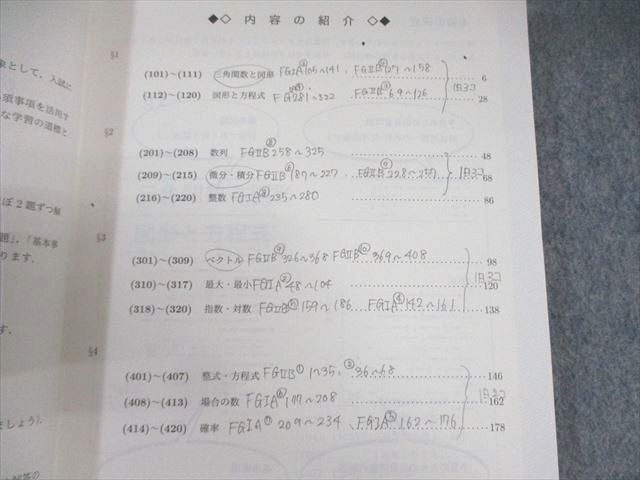 ◆◇ 内容の紹介 ◇◆
§1
象として，入試に
(101)～(111) 三角関数と図形 FGIA③105～141、FGⅡB④127～158 6
須事項を活用す
(112)～(120) 図形と方程式 FG 281～322 FGⅡB③69～126 28
な学習の道標と
§2
(201)～(208) 数列 FGⅡB⑧258～325 48
(209)～(215) 微分・積分 FGⅡB⑥187～227、FGⅡB⑦228～257 68
ぼ2題ずつ解
(216)～(220) 整数 FGIA⑧235～280 86
題」，「基本事
§3
ります．
(301)～(309) ベクトル FGⅡB⑨326～368 FGⅡB⑩369～408 98
(310)～(317) 最大・最小 FGIA②48～104 120
(318)～(320) 指数・対数 FGⅡB⑤159～186、FGIA④142～161 138
す．
§4
(401)～(407) 整式・方程式 FGⅡB①1～35、②36～68 146
(408)～(413) 場合の数 FGIA⑥177～208 162
ましょう)．
(414)～(420) 確率 FGIA⑦209～234、FGIA⑤162～176 178
解答の